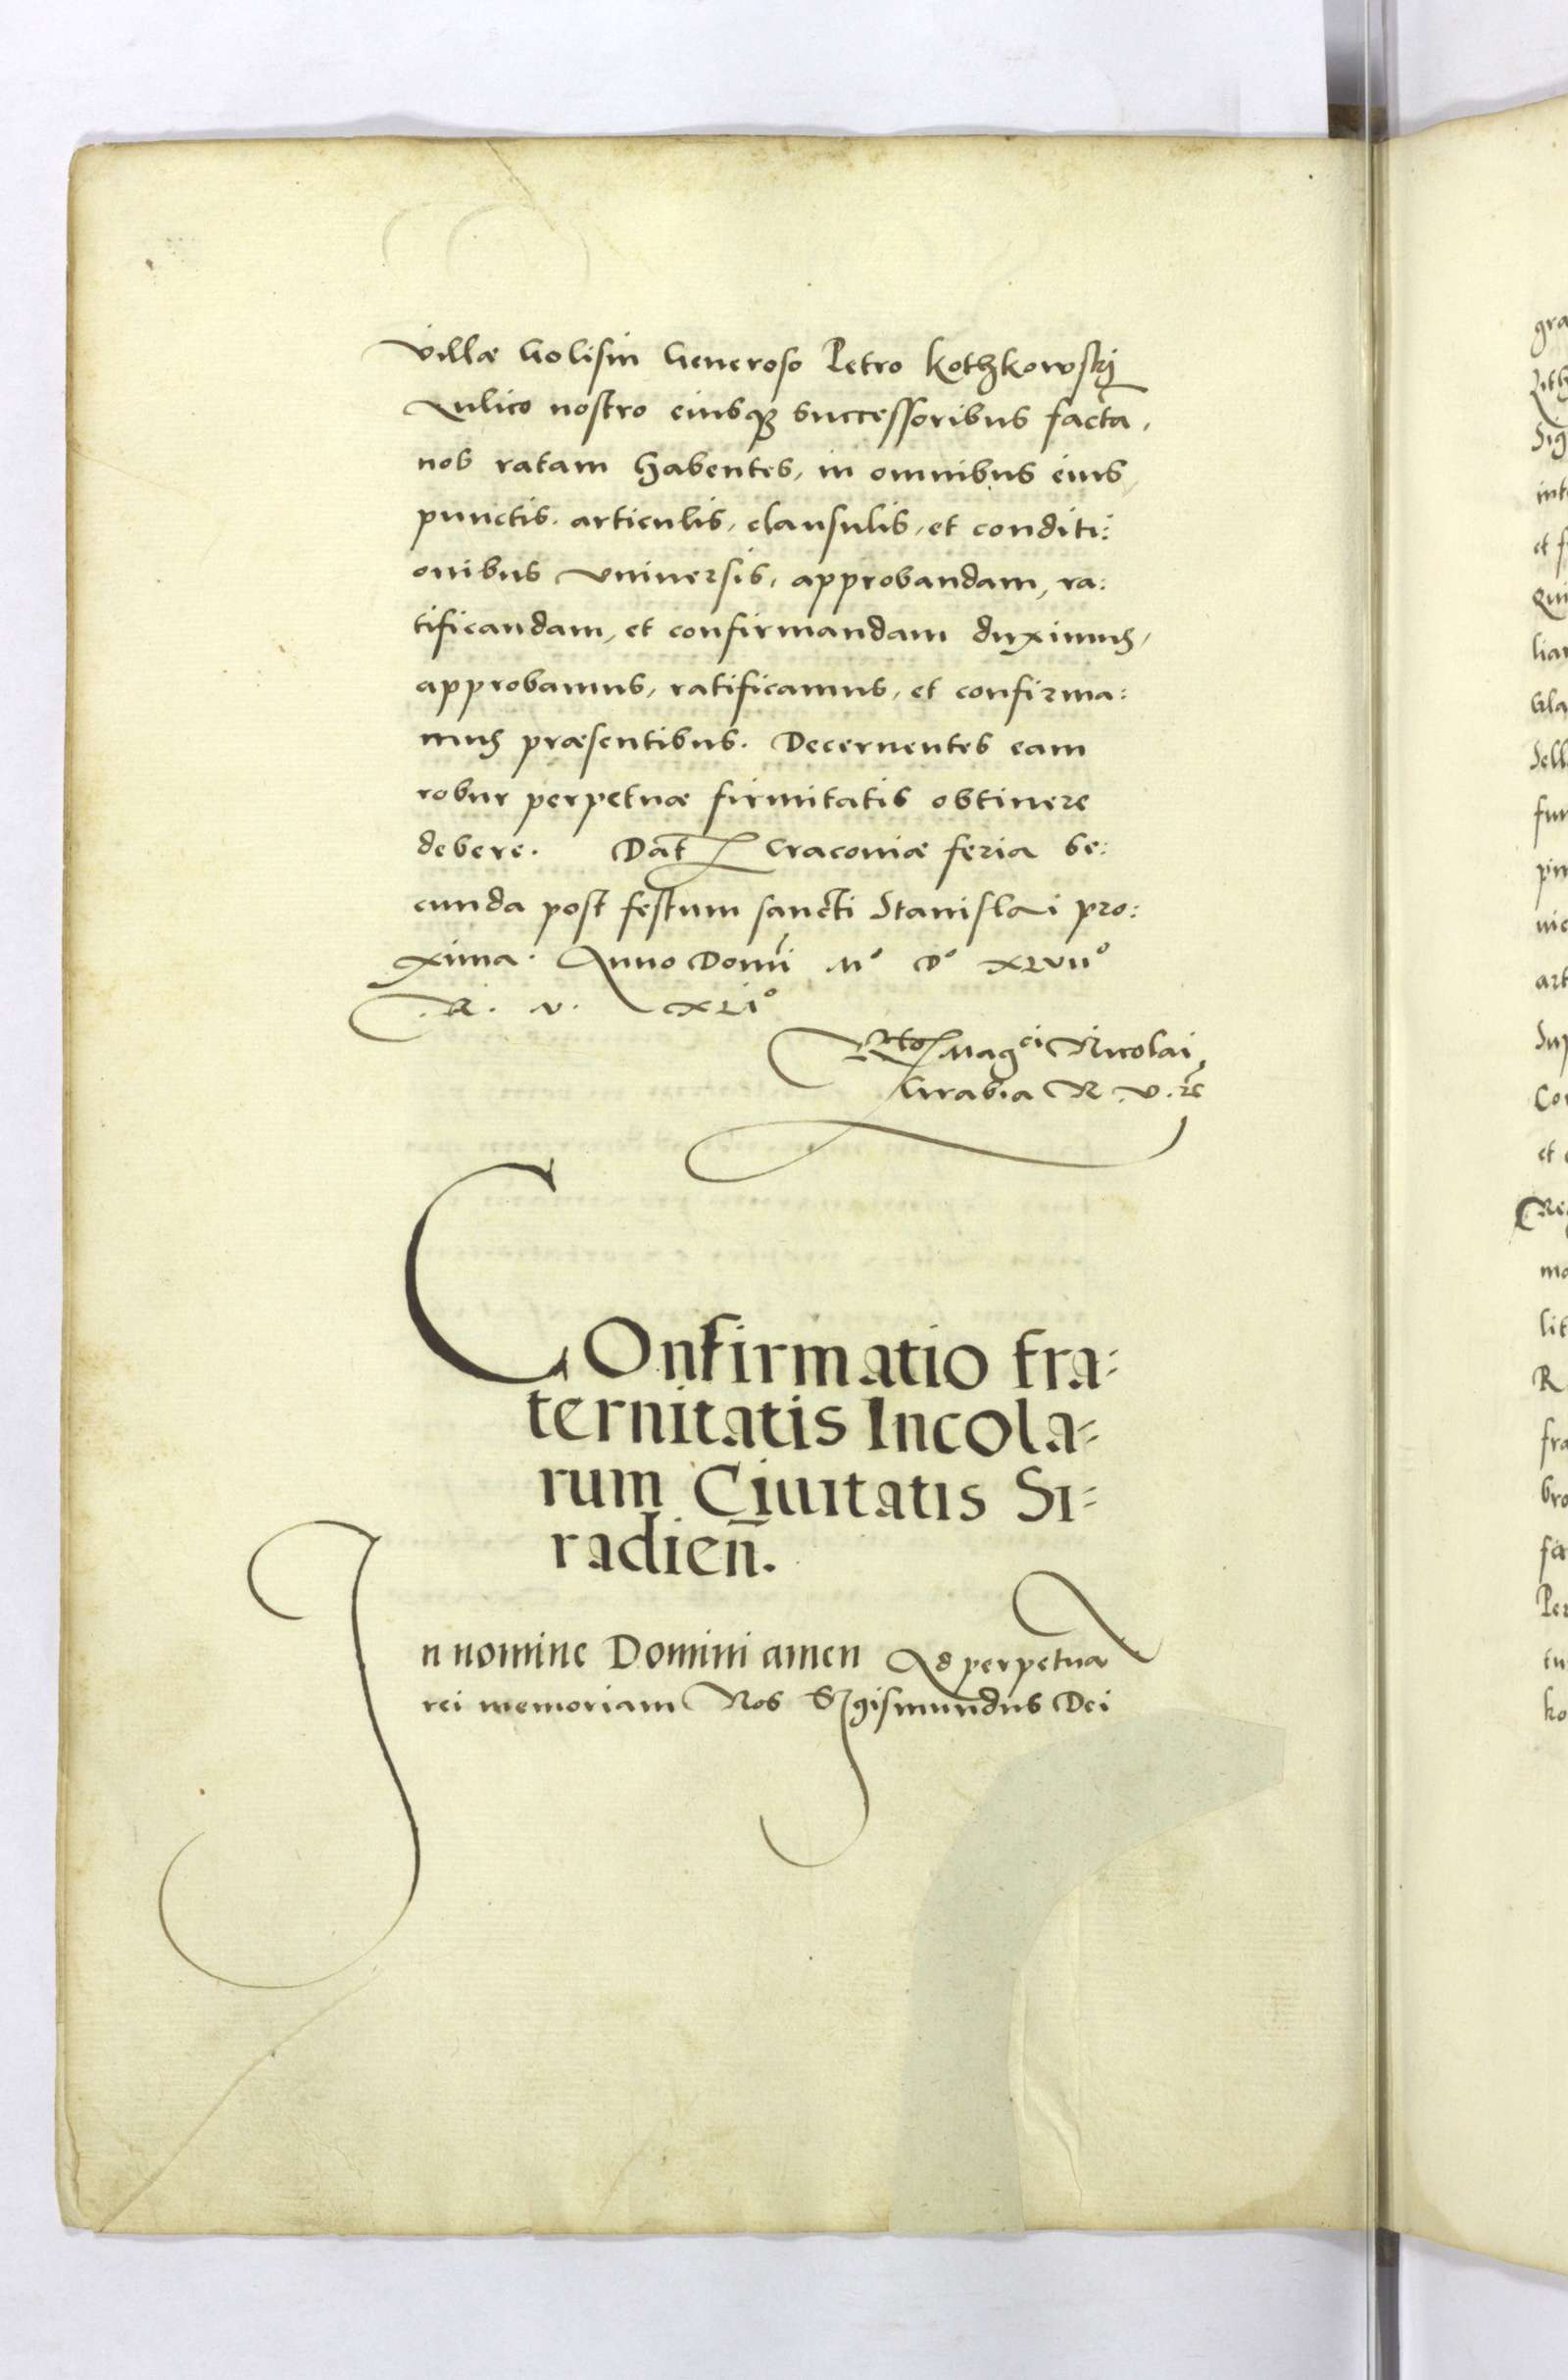 villæ Golisin Generoso Petro Kothkowskÿ
Aulico nostro eiusq3 successoribus factā,
nos ratam habentes, in omnibus eius
punctis, articulis, clausulis, et conditi:
onibus vniuersis, approbandam, ra:
tificandam, et confirmandam duximus,
approbamus, ratificamus, et confirma:
mus præsentibus. Decernentes eam
robur perpetuæ firmitatis obtinere
debere. Dat Cracouiæ feria se:
cunda post festum sancti Stanislai pro:
xima. Anno Domi Mº Dº XLVIIº
R. V. XLIº
Rtō Magci Nicolai
Grabia R. V. rc
COnfirmatio fra=
ternitatis Incola=
rum Ciuitatis Si=
radien̄.
In nomine Domini amen Ad perpetuā
rei memoriam Nos Sigismundus Dei
gra
Lith
Sig
int
et f
Qui
lia
Gla
Sell
fun
pin
nic
art
Sup
Co
et
Re
mo
lit
R
fra
bro
fa
Pe
tu
ko